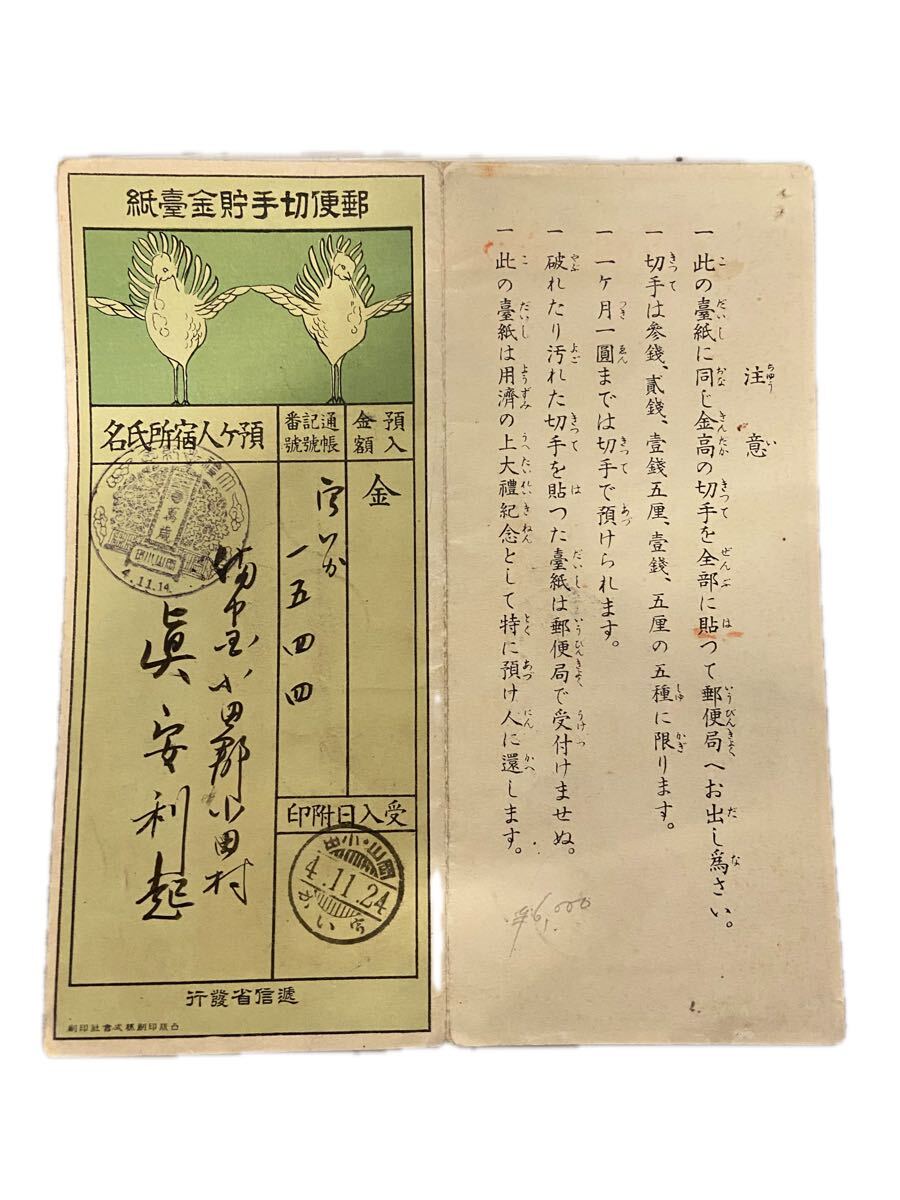 注意
一 此の臺紙に同じ金高の切手を全部に貼つて郵便局へお出し爲さい。
一 切手は參錢、貳錢、壹錢五厘、壹錢、五厘の五種に限ります。
一 一ヶ月一圓までは切手で預けられます。
一 破れたり汚れた切手を貼つた臺紙は郵便局で受付けませぬ。
一 此の臺紙は用濟の上大禮紀念として特に預け人に還します。
¥6,000
紙臺金貯手切便郵
預入金額
金
通帳記號番號
一五四四
名氏所宿人ケ預
萬歳
4.11.14
備中国小田郡小田村
眞安利起
印附日入受
岡山・小田
4.11.24
行發省信遞
刷印社會式株刷印版凸